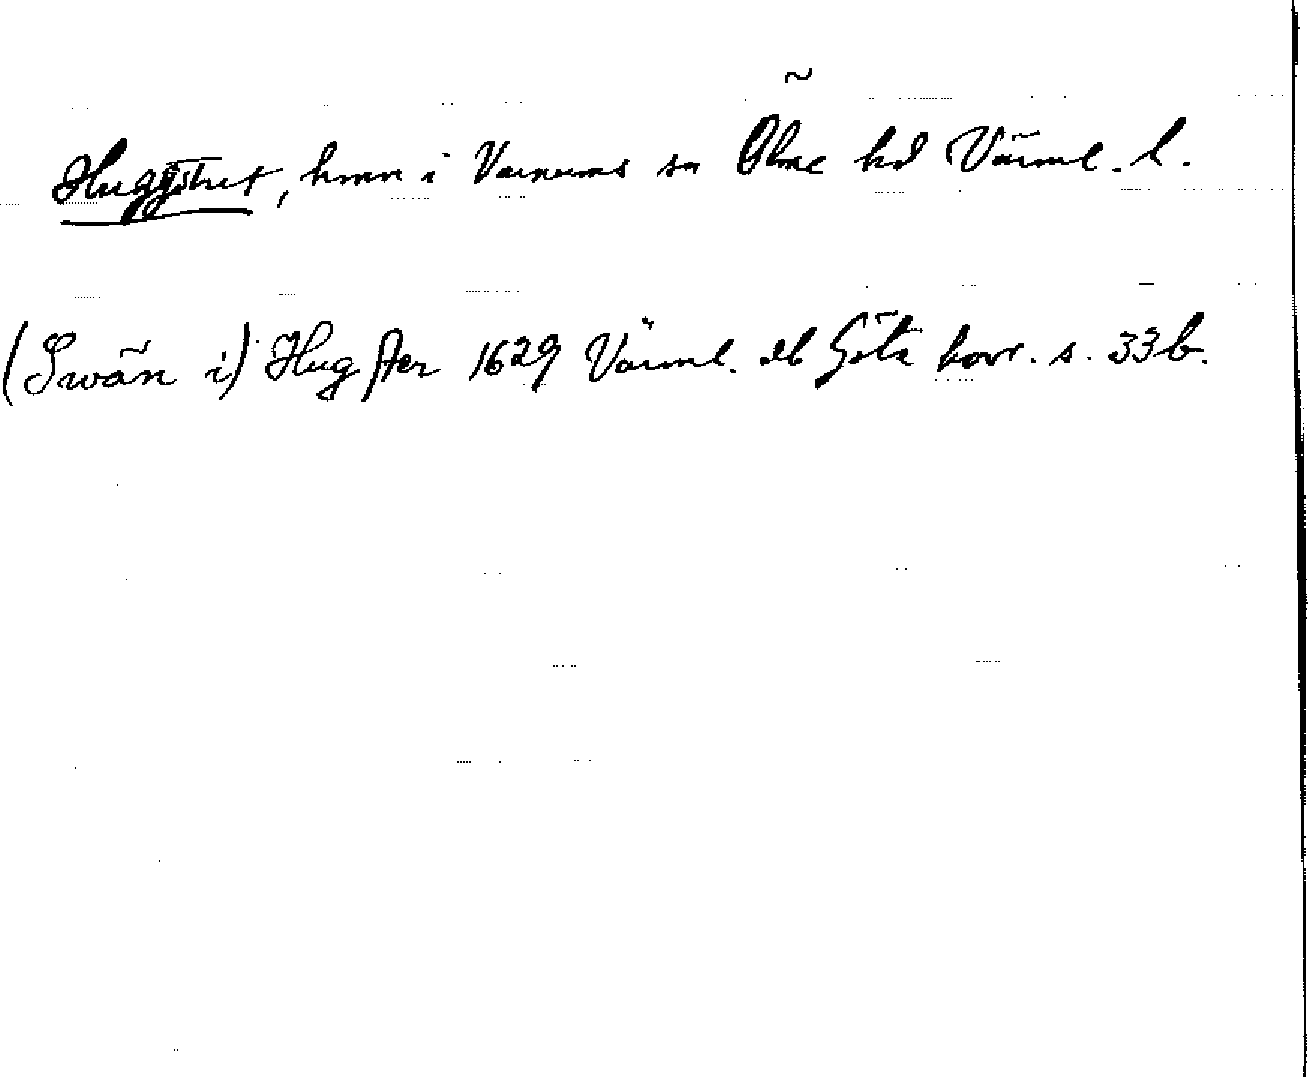 Huggstret, hmn i Varnums sn Ölme hd Värml. l.
(Swän i) Hugster 1629 Värml. Göta hovr. s. 33b.